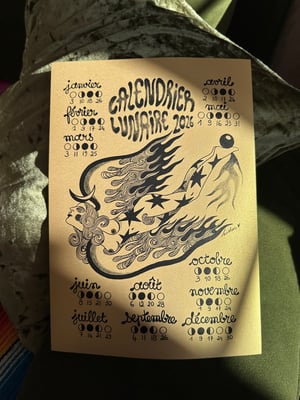 CALENDRIER
LUNAIRE 2026
janvier
3 10 18 26
février
1 9 17 24
mars
3 11 19 25
avril
mai
1 9 16 31
juin
juillet
7 14 21 29
août
6 12 20 28
septembre
4 11 18 26
octobre
3 10 26
novembre
1 9 17 24
décembre
1 9 17 24 30